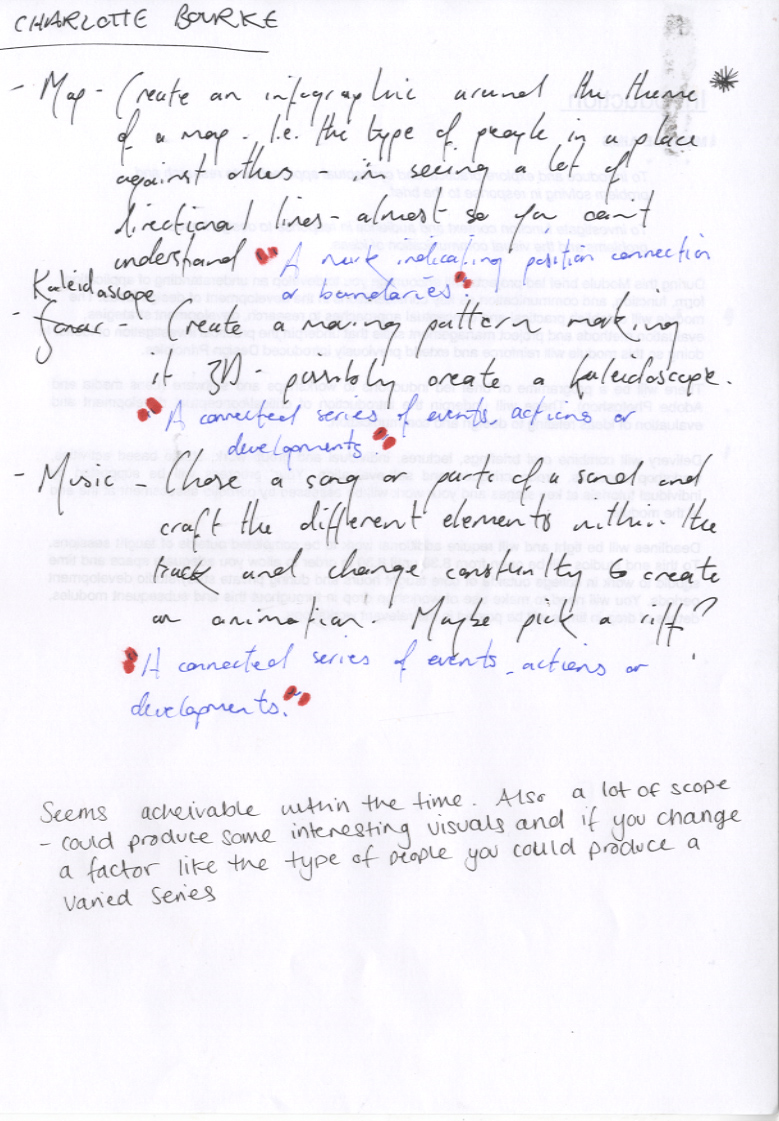 CHARLOTTE BOURKE
- Map - Create an infographic around the theme *
of a map. I.e. the type of people in a place
against others - in seeing a lot of
directional lines - almost so you can't
understand " A mark indicating position connection
or boundaries "
Kaleidoscope
- - Create a moving pattern making
it 3D - possibly create a Kaleidoscope.
" A connected series of events, actions or
developments "
- Music - Chose a song or parts of a and
craft the different elements within the
track and change constantly to create
an animation. Maybe pick a riff?
" A connected series of events, actions or
developments. "
Seems acheivable within the time. Also a lot of scope
- could produce some interesting visuals and if you change
a factor like the type of people you could produce a
varied series